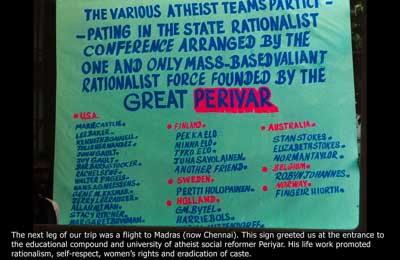 THE VARIOUS ATHEIST TEAMS PARTICI -
- PATING IN THE STATE RATIONALIST
CONFERENCE ARRANGED BY THE
ONE AND ONLY MASS-BASED VALIANT
RATIONALIST FORCE FOUNDED BY THE
GREAT PERIYAR
U.S.A.
MARIE CASTLE.
LEE BAKER.
KENNETH BONNELL.
JOHN GAULT.
JOY GAULT.
WALTER
GENE M. KASMAR.
ALLAN
STACY RITCHER.
MARGARET BOWMAN.
FINLAND.
PEKKA ELO.
MINNA ELO
JUHA SAVOLAINEN.
ANOTHER FRIEND.
SWEDEN.
PERTTI HOLOPAINEN.
HOLLAND.
G.M. BYTEL.
HARRIE BOLS.
AUSTRALIA.
STAN STOKES.
ELIZABETH STOKES.
NORMAN TAYLOR.
BELGIUM.
ROBYN JOHANNES.
NORWAY.
The next leg of our trip was a flight to Madras (now Chennai). This sign greeted us at the entrance to
the educational compound and university of atheist social reformer Periyar. His life work promoted
rationalism, self-respect, women's rights and eradication of caste.